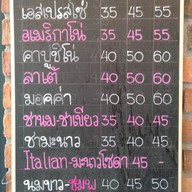 เอสเปรสโซ่ 35 45 55
อเมริกาโน่ 35 45 55
คาปูชิโน่ 40 50 60
ลาเต้ 40 50 60
มอคค่า 40 50 60
ชานม-ชาเขียว 35 40 45
ชามะนาว 35 40 45
Italian-มะนาวโซดา 40 45 -
นมขาว-ชมพู 40 45 50